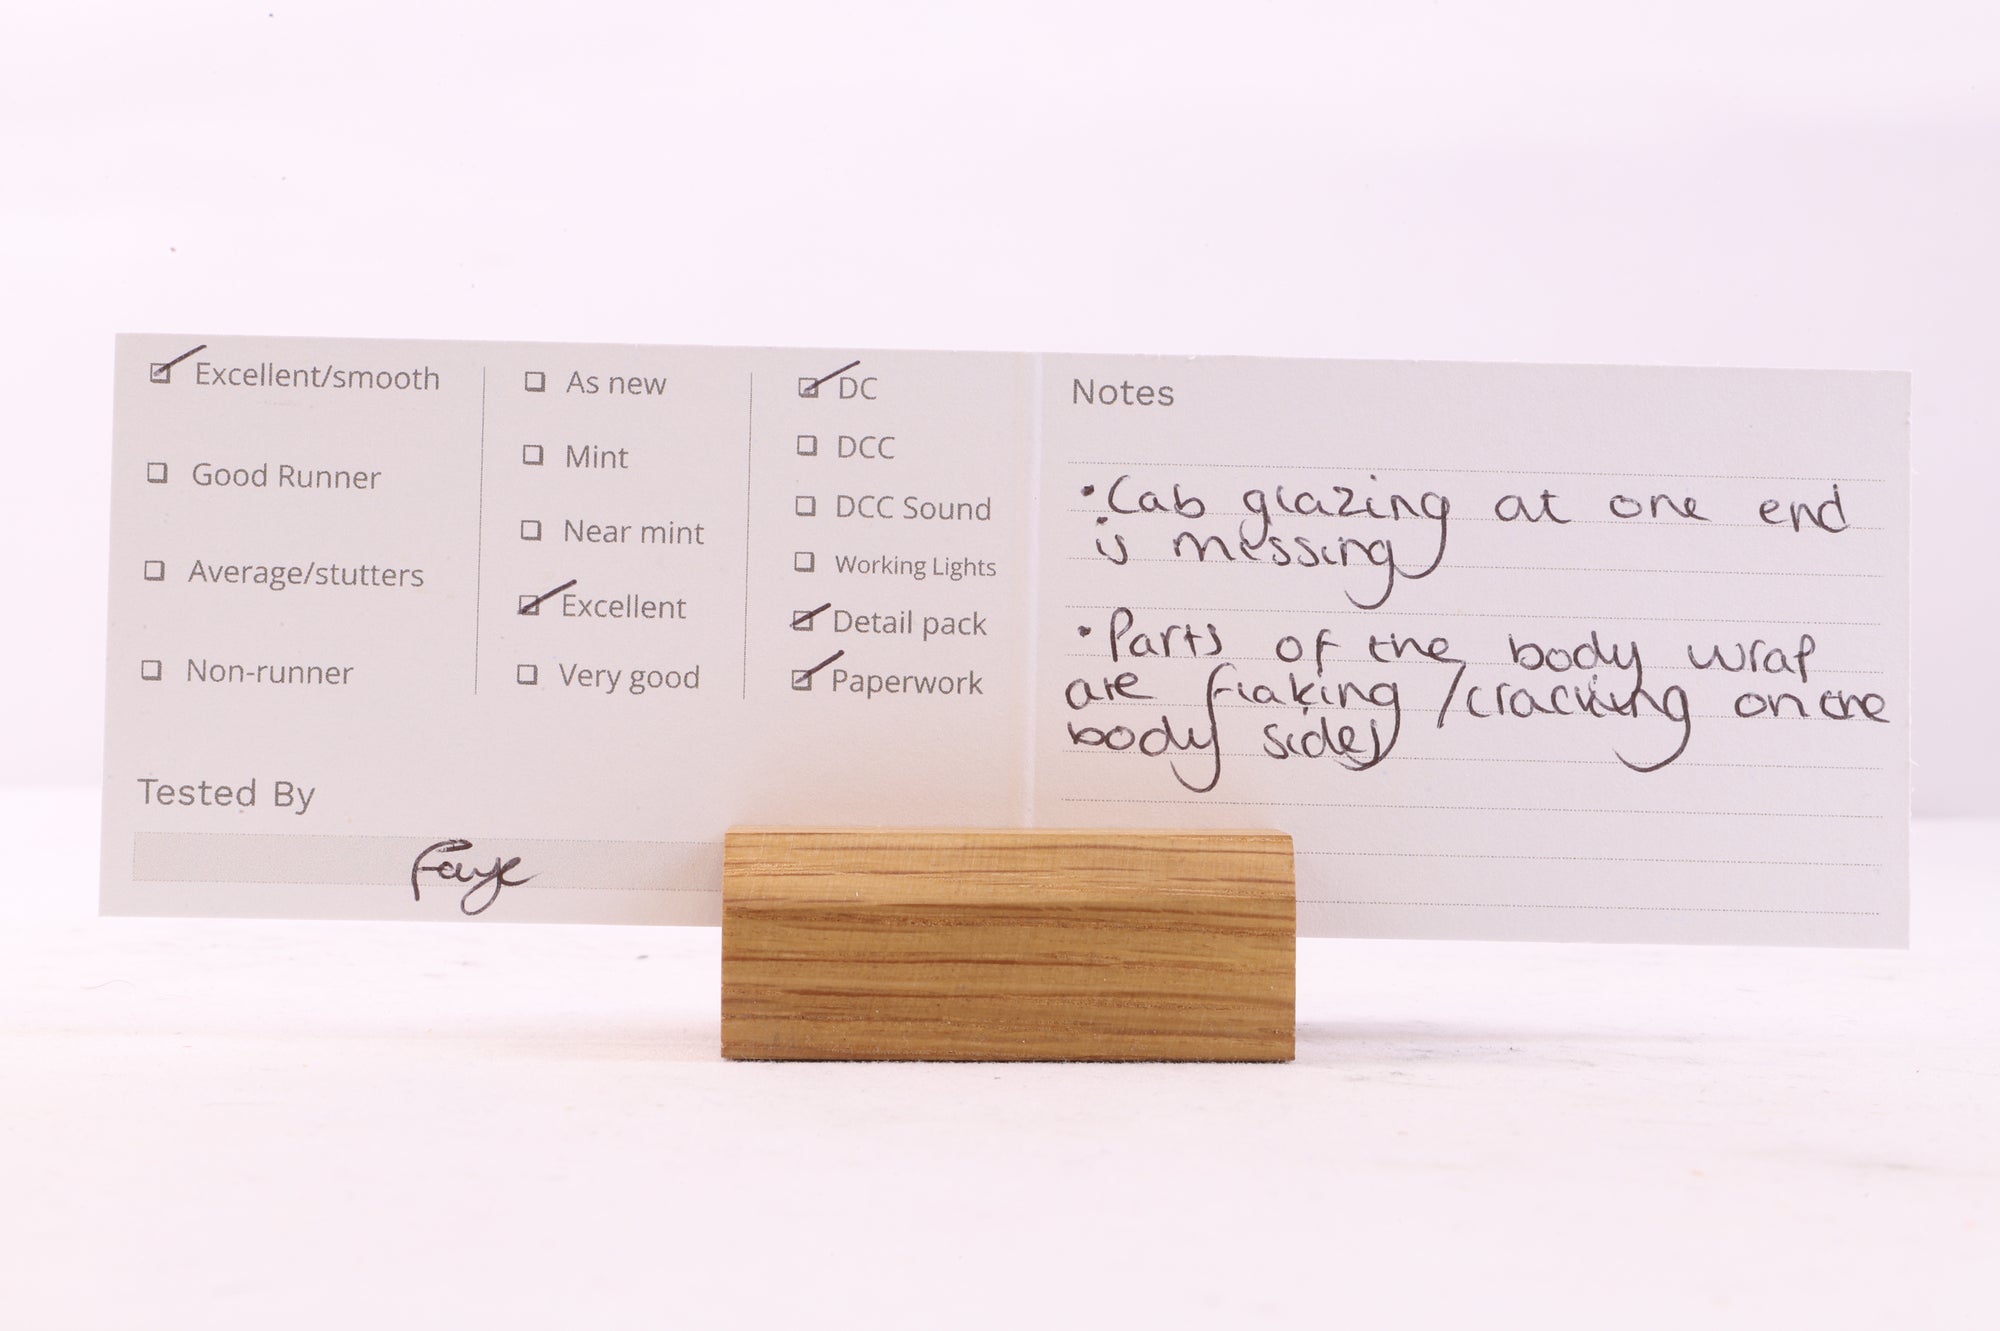 Excellent/smooth
Good Runner
Average/stutters
Non-runner
As new
Mint
Near mint
Excellent
Very good
DC
DCC
DCC Sound
Working Lights
Detail pack
Paperwork
Tested By
Faye
Notes
• Cab glazing at one end
is missing
• Parts of the body wrap
are flaking / cracking on the
body sides